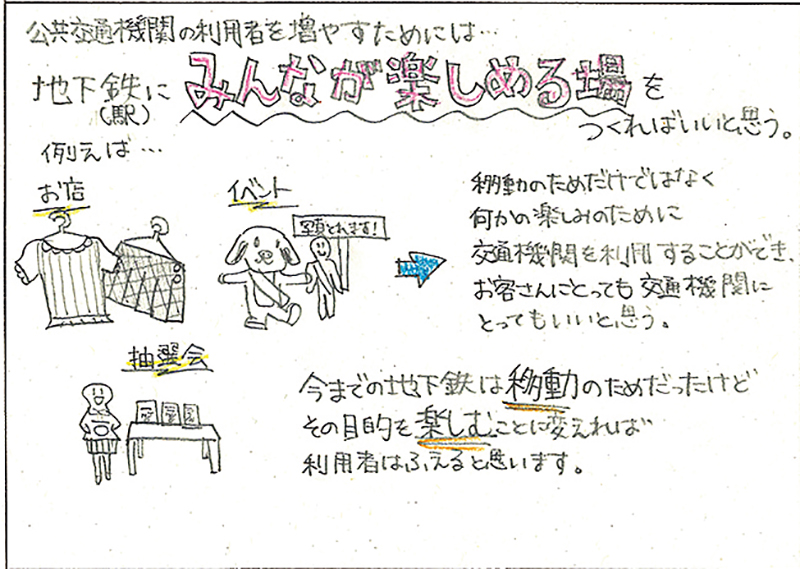 公共交通機関の利用者を増やすためには…
地下鉄に みんなが楽しめる場を
(駅)
つくればいいと思う。
例えば…
お店
イベント
写真とれます!
移動のためだけではなく
何かの楽しみのために
交通機関を利用することができ、
お客さんにとっても交通機関に
とってもいいと思う。
抽選会
今までの地下鉄は移動のためだったけど
その目的を楽しむことに変えれば
利用者はふえると思います。